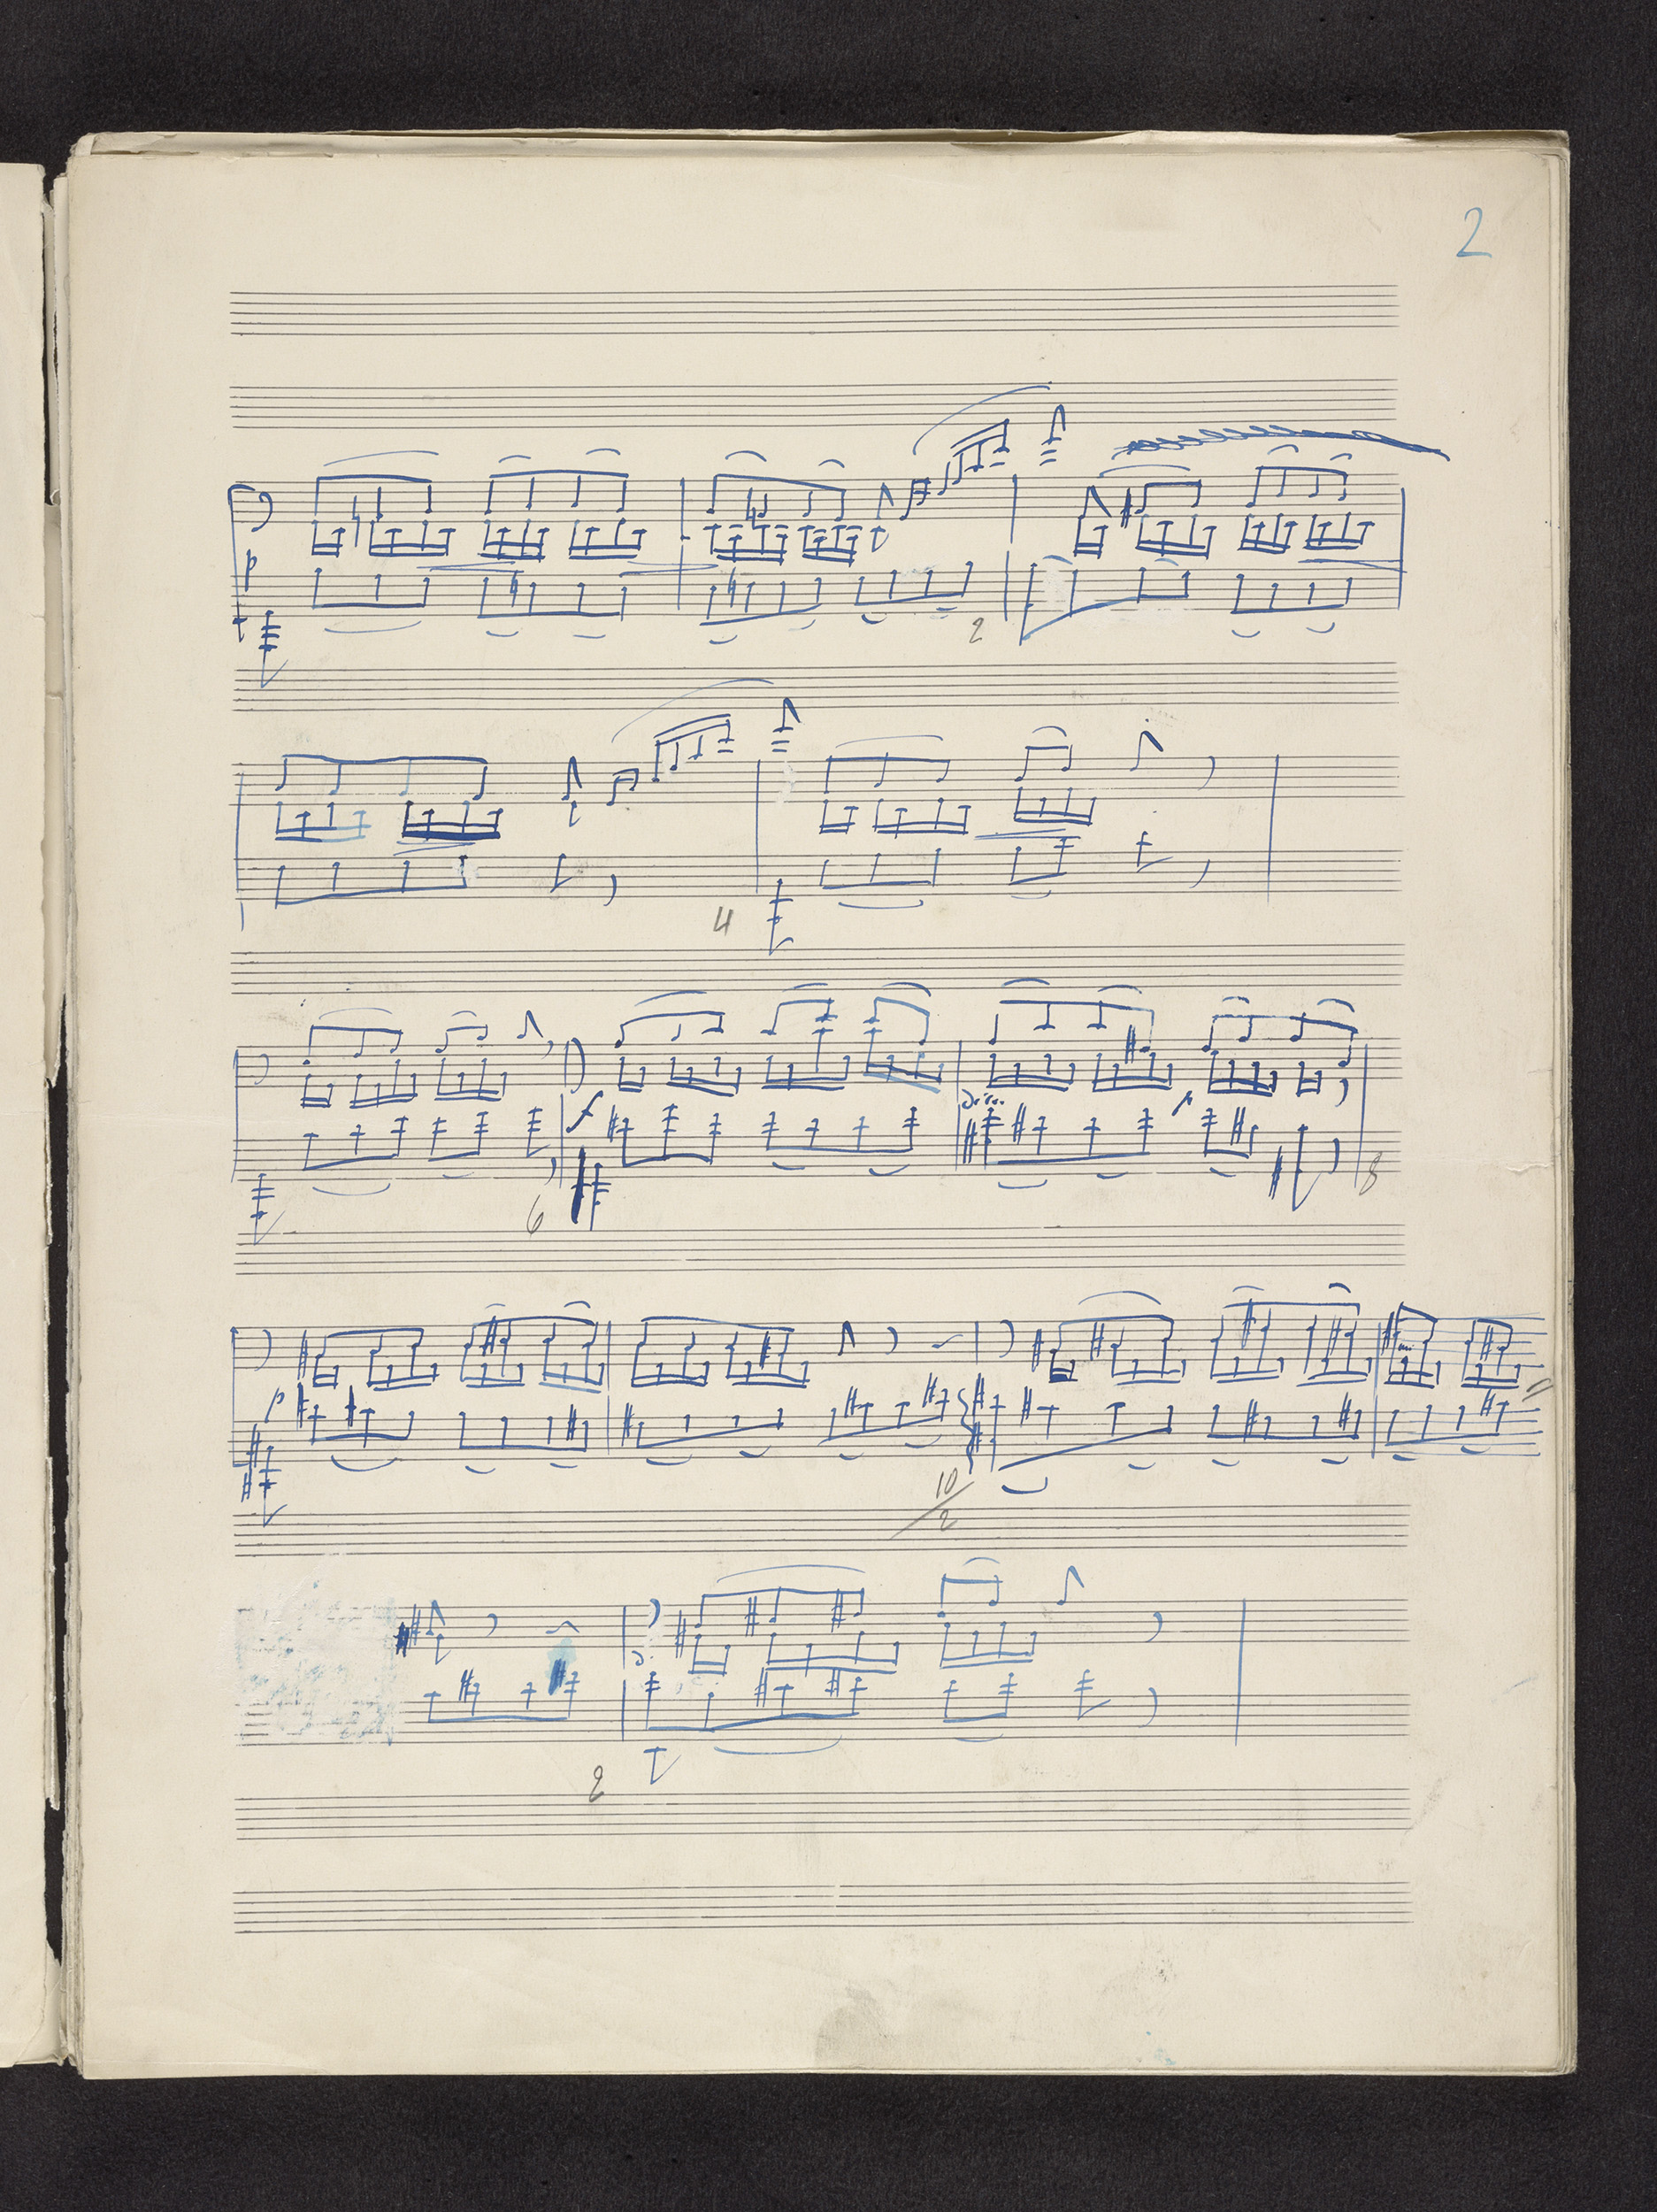 2
p
2
4
f
decresc.
p
6
8
p
10
2
2